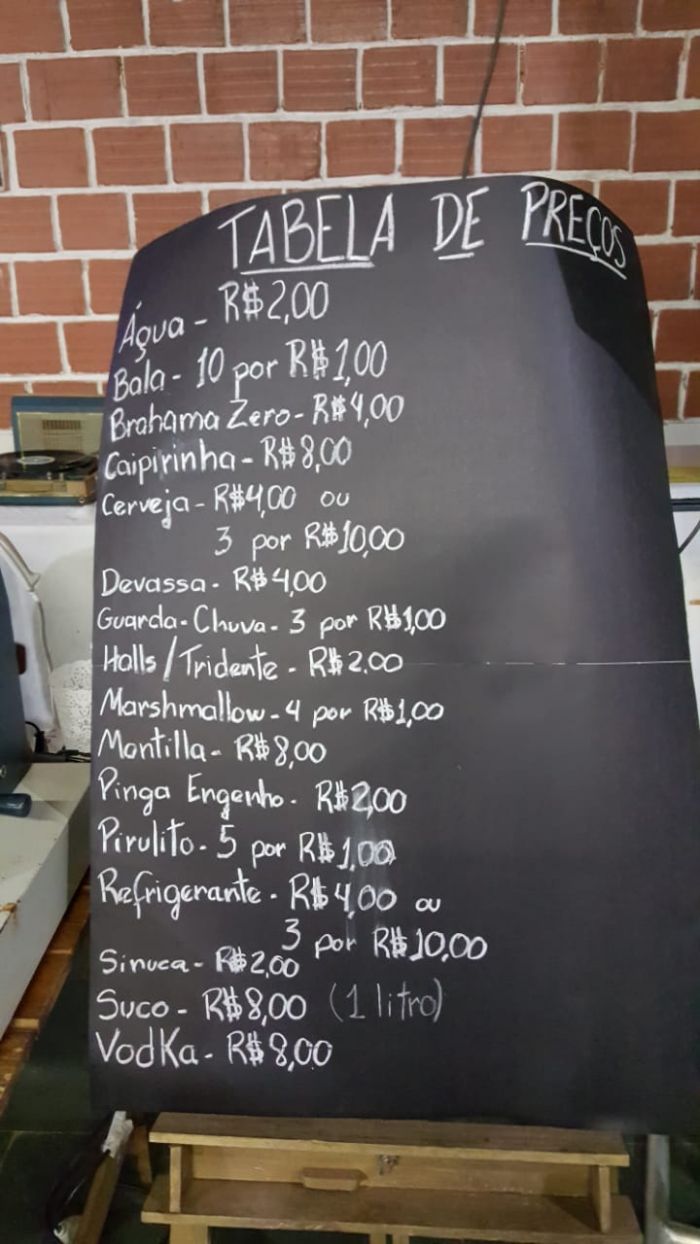 TABELA DE PREÇOS
Água - R$2,00
Bala - 10 por R$1,00
Brahama Zero - R$4,00
Caipirinha - R$8,00
Cerveja - R$4,00 ou
3 por R$10,00
Devassa - R$4,00
Guarda-Chuva - 3 por R$1,00
Halls/Tridente - R$2.00
Marshmallow - 4 por R$1,00
Montilla - R$8,00
Pinga Engenho - R$2,00
Pirulito - 5 por R$1,00
Refrigerante - R$4,00 ou
3 por R$10,00
Sinuca - R$2,00
Suco - R$8,00 (1 litro)
Vodka - R$8,00